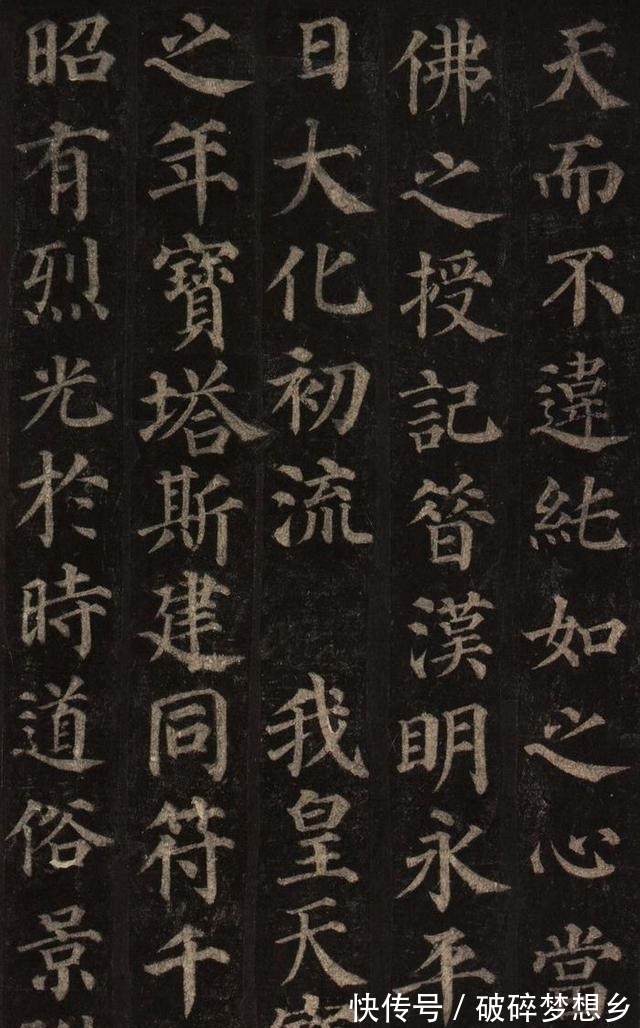 天而不違純如之心當
佛之授記昔漢明永平
日大化初流 我皇天寶
之年寶塔斯建同符千
昭有烈光於時道俗景
快传号 / 破碎梦想乡